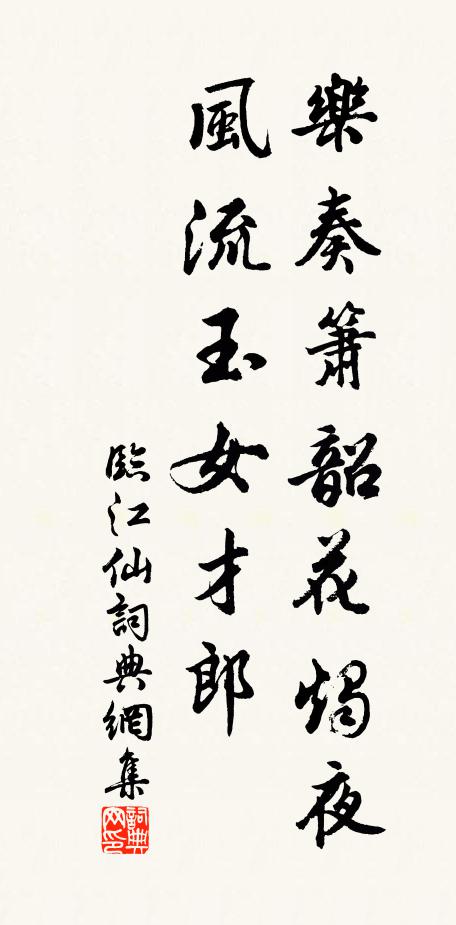 樂奏簫韶花燭夜
風流玉女才郎
臨江仙詞典網集
詞典网印